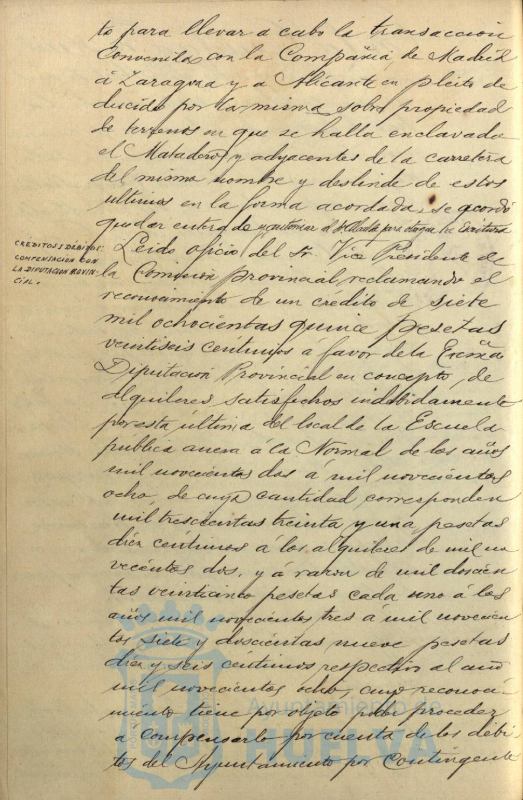 to para llevar á cabo la transacción
convenida con la Compañia de Madrid
á Zaragoza y á Alicante en pleito de
ducido por la misma sobre propiedad
de terrenos en que se halla enclavado
el Matadero y adyacentes de la carretera
del mismo nombre y deslinde de estos
ultimos en la forma acordada, se acordó
quedar enterado y autorizar al Sr. Alcalde para otorgue la Escritura
CRÉDITOS Y DÉBITOS.
COMPENSACION CON
LA DIPUTACION PROVIN-
CIAL.
Leido oficio del Sr. Vice Presidente de
la Comisión provincial reclamando el
reconocimiento de un credito de siete
mil ochocientas quince pesetas
veintiseis centimos á favor de la Excma
Diputación Provincial en concepto, de
alquileres satisfechos indebidamente
por esta última del local de la Escuela
publica aneja á la Normal de los años
mil novecientos dos á mil novecientos
ocho, de cuya cantidad corresponden
mil trescientas treinta y una pesetas
diez centimos á los alquileres de mil no
vecientos dos, y á razon de mil doscien
tas veinticinco pesetas cada uno á los
años mil novecientos tres á mil novecien
tos siete y doscientas nueve pesetas
diez y seis centimos respectivo al año
mil novecientos ocho, cuyo reconoci-
miento tiene por objeto poder proceder
a compensarlo por cuenta de los debi-
tos del Ayuntamiento por Contingente
Ayuntamiento de
HUELVA